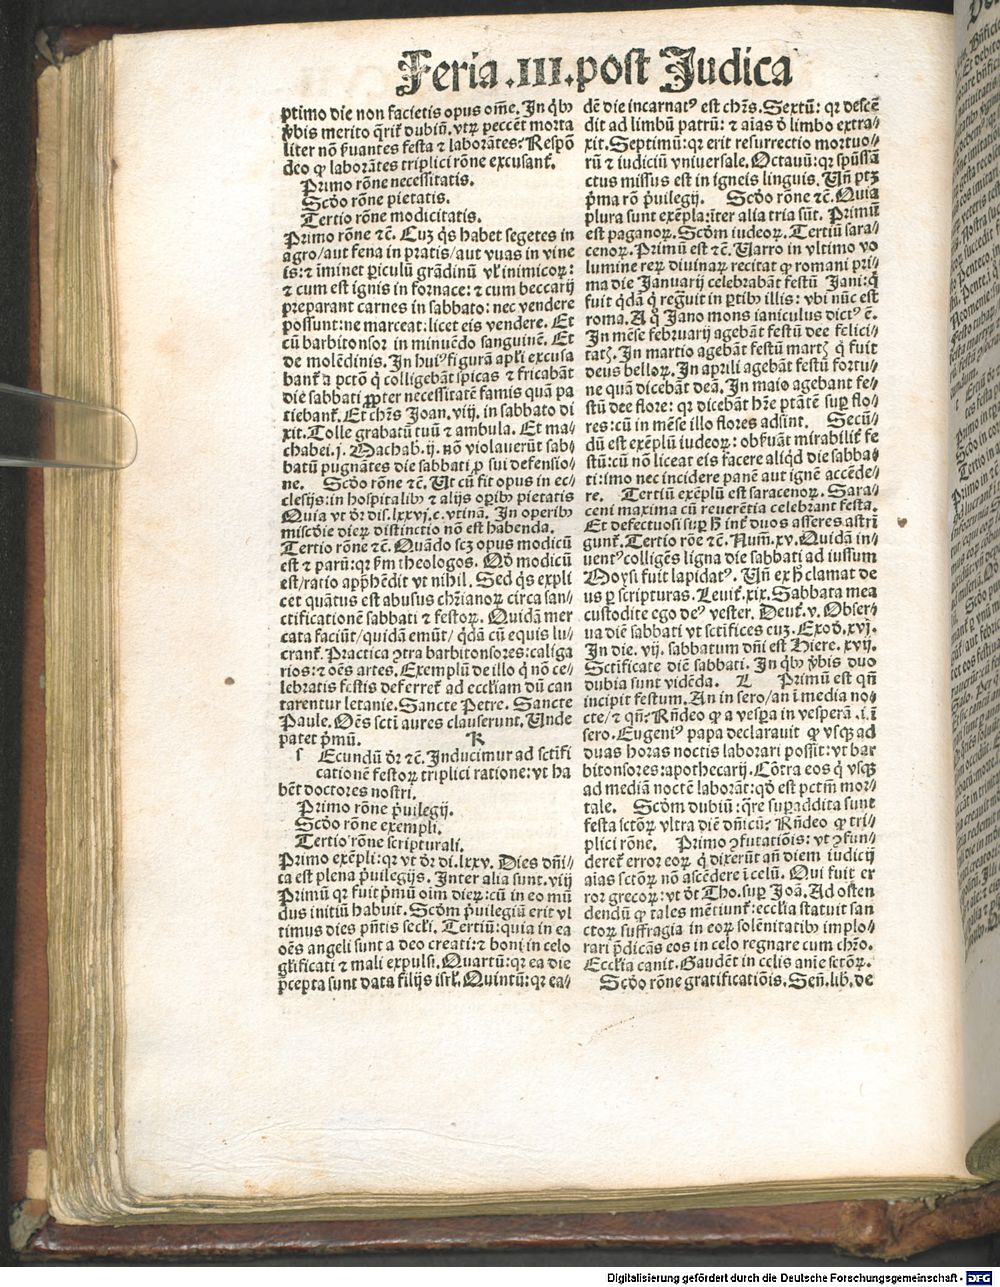 Feria .III. post Judica
ptimo die non facietis opus om̄e. In qͥbꝫ
v̓bis merito q̄rit̄ dubiū. vtꝝ peccēt morta
liter nō p̄uantes festa ⁊ laborātes: Respō
deo ꝙ laborātes triplici rōne excusant̄.
Primo rōne necessitatis.
Scd̓o rōne pietatis.
Tertio rōne modicitatis.
Primo rōne ⁊c̄. Cuꝫ qͥs habet segetes in
agro/aut fena in pratis/aut vuas in vine
is: ⁊ īminet ꝑiculū grādinū vl̓ inimicoꝝ:
⁊ cum est ignis in fornace: ⁊ cum beccarij
preparant carnes in sabbato: nec vendere
possunt: ne marceat: licet eis vendere. Et
cū barbitonsor in minuēdo sanguinē. Et
de molēdinis. In huiꝰ figurā apl̓i excusa
bant̄ a pctō qͥ colligebāt spicas ⁊ fricabāt
die sabbati ꝓpter necessitatē famis quā pa
tiebant̄. Et chr̄s Joan. viij. in sabbato di
xit. Tolle grabatū tuū ⁊ ambula. Et ma-
chabei. j. Machab. ij. nō violauerūt sab-
batū pugnātes die sabbati ꝓ sui defensio-
ne. Scd̓o rōne ⁊c̄. Ut cū fit opus in ec-
clesijs: in hospitalibꝫ ⁊ alijs oꝑibꝫ pietatis
Quia vt d̓r dis. lxxvj. c. vtinā. In operibꝫ
miscd̓ie dieꝝ distinctio nō est habenda.
Tertio rōne ⁊c̄. Quādo scꝫ opus modicū
est ⁊ parū: qꝛ ẜm theologos. Qd̓ modicū
est/ratio app̄hēdit vt nihil. Sed qͥs expli
cet quātus est abusus chr̄ianoꝝ circa san-
ctificationē sabbati ⁊ festoꝝ. Quidā mer
cata faciūt/quidā emūt/ qͥdā cū equis lu-
crant̄. Practica ↄtra barbitonsores: caliga
rios: ⁊ oēs artes. Exemplū de illo qͥ nō ce-
lebratis festis deferret̄ ad eccl̓iam dū can
tarentur letanie. Sancte Petre. Sancte
Paule. Oēs sctī aures clauserunt. Unde
patet p̄mū. K
s Ecundū d̓r ⁊c̄. Inducimur ad sctīfi
cationē festoꝝ triplici ratione: vt ha
bēt doctores nostri.
Primo rōne p̄uilegij.
Scd̓o rōne exempli.
Tertio rōne scripturali.
Primo exēpli: qꝛ vt d̓r di. lxxv. Dies dn̄i-
ca est plena p̄uilegijs. Inter alia sunt. viij
Primū qꝛ fuit p̄mū oim dieꝝ: cū in eo mū
dus initiū habuit. Scd̓m p̄uilegiū erit vl
timus dies pn̄tis secl̓i. Tertiū: quia in ea
oēs angeli sunt a deo creati: ⁊ boni in celo
gl̓ificati ⁊ mali expulsi. Quartū: qꝛ ea die
p̄cepta sunt data filijs isrl̓. Quintū: qꝛ ea-
dē die incarnatꝰ est chr̄s. Sextū: qꝛ descē
dit ad limbū patrū: ⁊ aīas d̓ limbo extra-
xit. Septimū: qꝛ erit resurrectio mortuo-
rū ⁊ iudiciū vniuersale. Octauū: qꝛ spūssā
ctus missus est in igneis linguis. Un̄ ptꝫ
p̄ma rō p̄uilegij. Scd̓o rōne ⁊c̄. Quia
plura sunt exēpla: īter alia tria sūt. Primū
est paganoꝝ. Scd̓m iudeoꝝ. Tertiū sara-
cenoꝝ. Primū est ⁊c̄. Uarro in vltimo vo
lumine reꝝ diuinaꝝ recitat ꝙ romani pri-
ma die Januarij celebrabāt festū Jani: qͥ
fuit qͥdā qͥ regͣuit in ꝑtibꝫ illis: vbi nūc est
roma. A qͦ Jano mons ianiculus dictꝰ ē.
In mēse februarij agebāt festū dee felici-
tatꝭ. In martio agebāt festū martꝭ qͥ fuit
deus belloꝝ. In aprili agebāt festū fortu-
ne quā dicebāt deā. In maio agebant fe-
stū dee flore: qꝛ dicebāt hr̄e ptātē suꝑ flo-
res: cū in mēse illo flores adsint. Secū-
dū est exēplū iudeoꝝ: obẜuāt mirabilit̄ fe
stū: cū nō liceat eis facere aliqͥd die sabba-
ti: imo nec incidere panē aut ignē accēde-
re. Tertiū exēplū est saracenoꝝ. Sara-
ceni maxima cū reuerētia celebrant festa.
Et defectuosi suꝑ ꝭ int̄ duos asseres astri
gunt̄. Tertio rōe ⁊c̄. Num̄. xv. Quidā in-
uentꝰ colligēs ligna die sabbati ad iussum
Moysi fuit lapidatꝰ. Un̄ ex ꝭ clamat de
us ꝑ scripturas. Leuit̄. xix. Sabbata mea
custodite ego deꝰ vester. Deut̄. v. Obser-
ua diē sabbati vt sctīfices cuꝫ. Exod̓. xvj.
In die. vij. sabbatum dn̄i est Hiere. xvij.
Sctīficate diē sabbati. In qͥbꝫ v̓bis duo
dubia sunt vidēda. L Primū est qn̄
incipit festum. An in sero/an ī media no-
cte/ ⁊ qn̄: Rn̄deo ꝙ a vesꝑa in vesperā .i. ī
sero. Eugeniꝰ papa declarauit ꝙ vsqꝫ ad
duas horas noctis laborari possit: vt bar
bitonsores: apothecarij. Cōtra eos qͥ vsqꝫ
ad mediā noctē laborāt: qd̓ est pctm̄ mor-
tale. Scd̓m dubiū: q̄re suꝑaddita sunt
festa sctōꝝ vltra diē dn̄icū: Rn̄deo ꝙ tri-
plici rōne. Primo ↄfutatiōis: vt ↄfun-
deret̄ error eoꝝ qͥ dixerūt an̄ diem iudicij
aīas sctōꝝ nō ascēdere ī celū. Qui fuit er
ror grecoꝝ: vt d̓t Tho. suꝑ Joā. Ad osten
dendū ꝙ tales mētiunt̄: eccl̓ia statuit san
ctoꝝ suffragia in eoꝝ solēnitatibꝫ implo-
rari p̄dicās eos in celo regnare cum chr̄o.
Eccl̓ia canit. Gaudēt in celis anīe sctōꝝ.
Scd̓o rōne gratificatiōis. Sen̄. lib. de
Digitalisierung gefördert durch die Deutsche Forschungsgemeinschaft - DFG